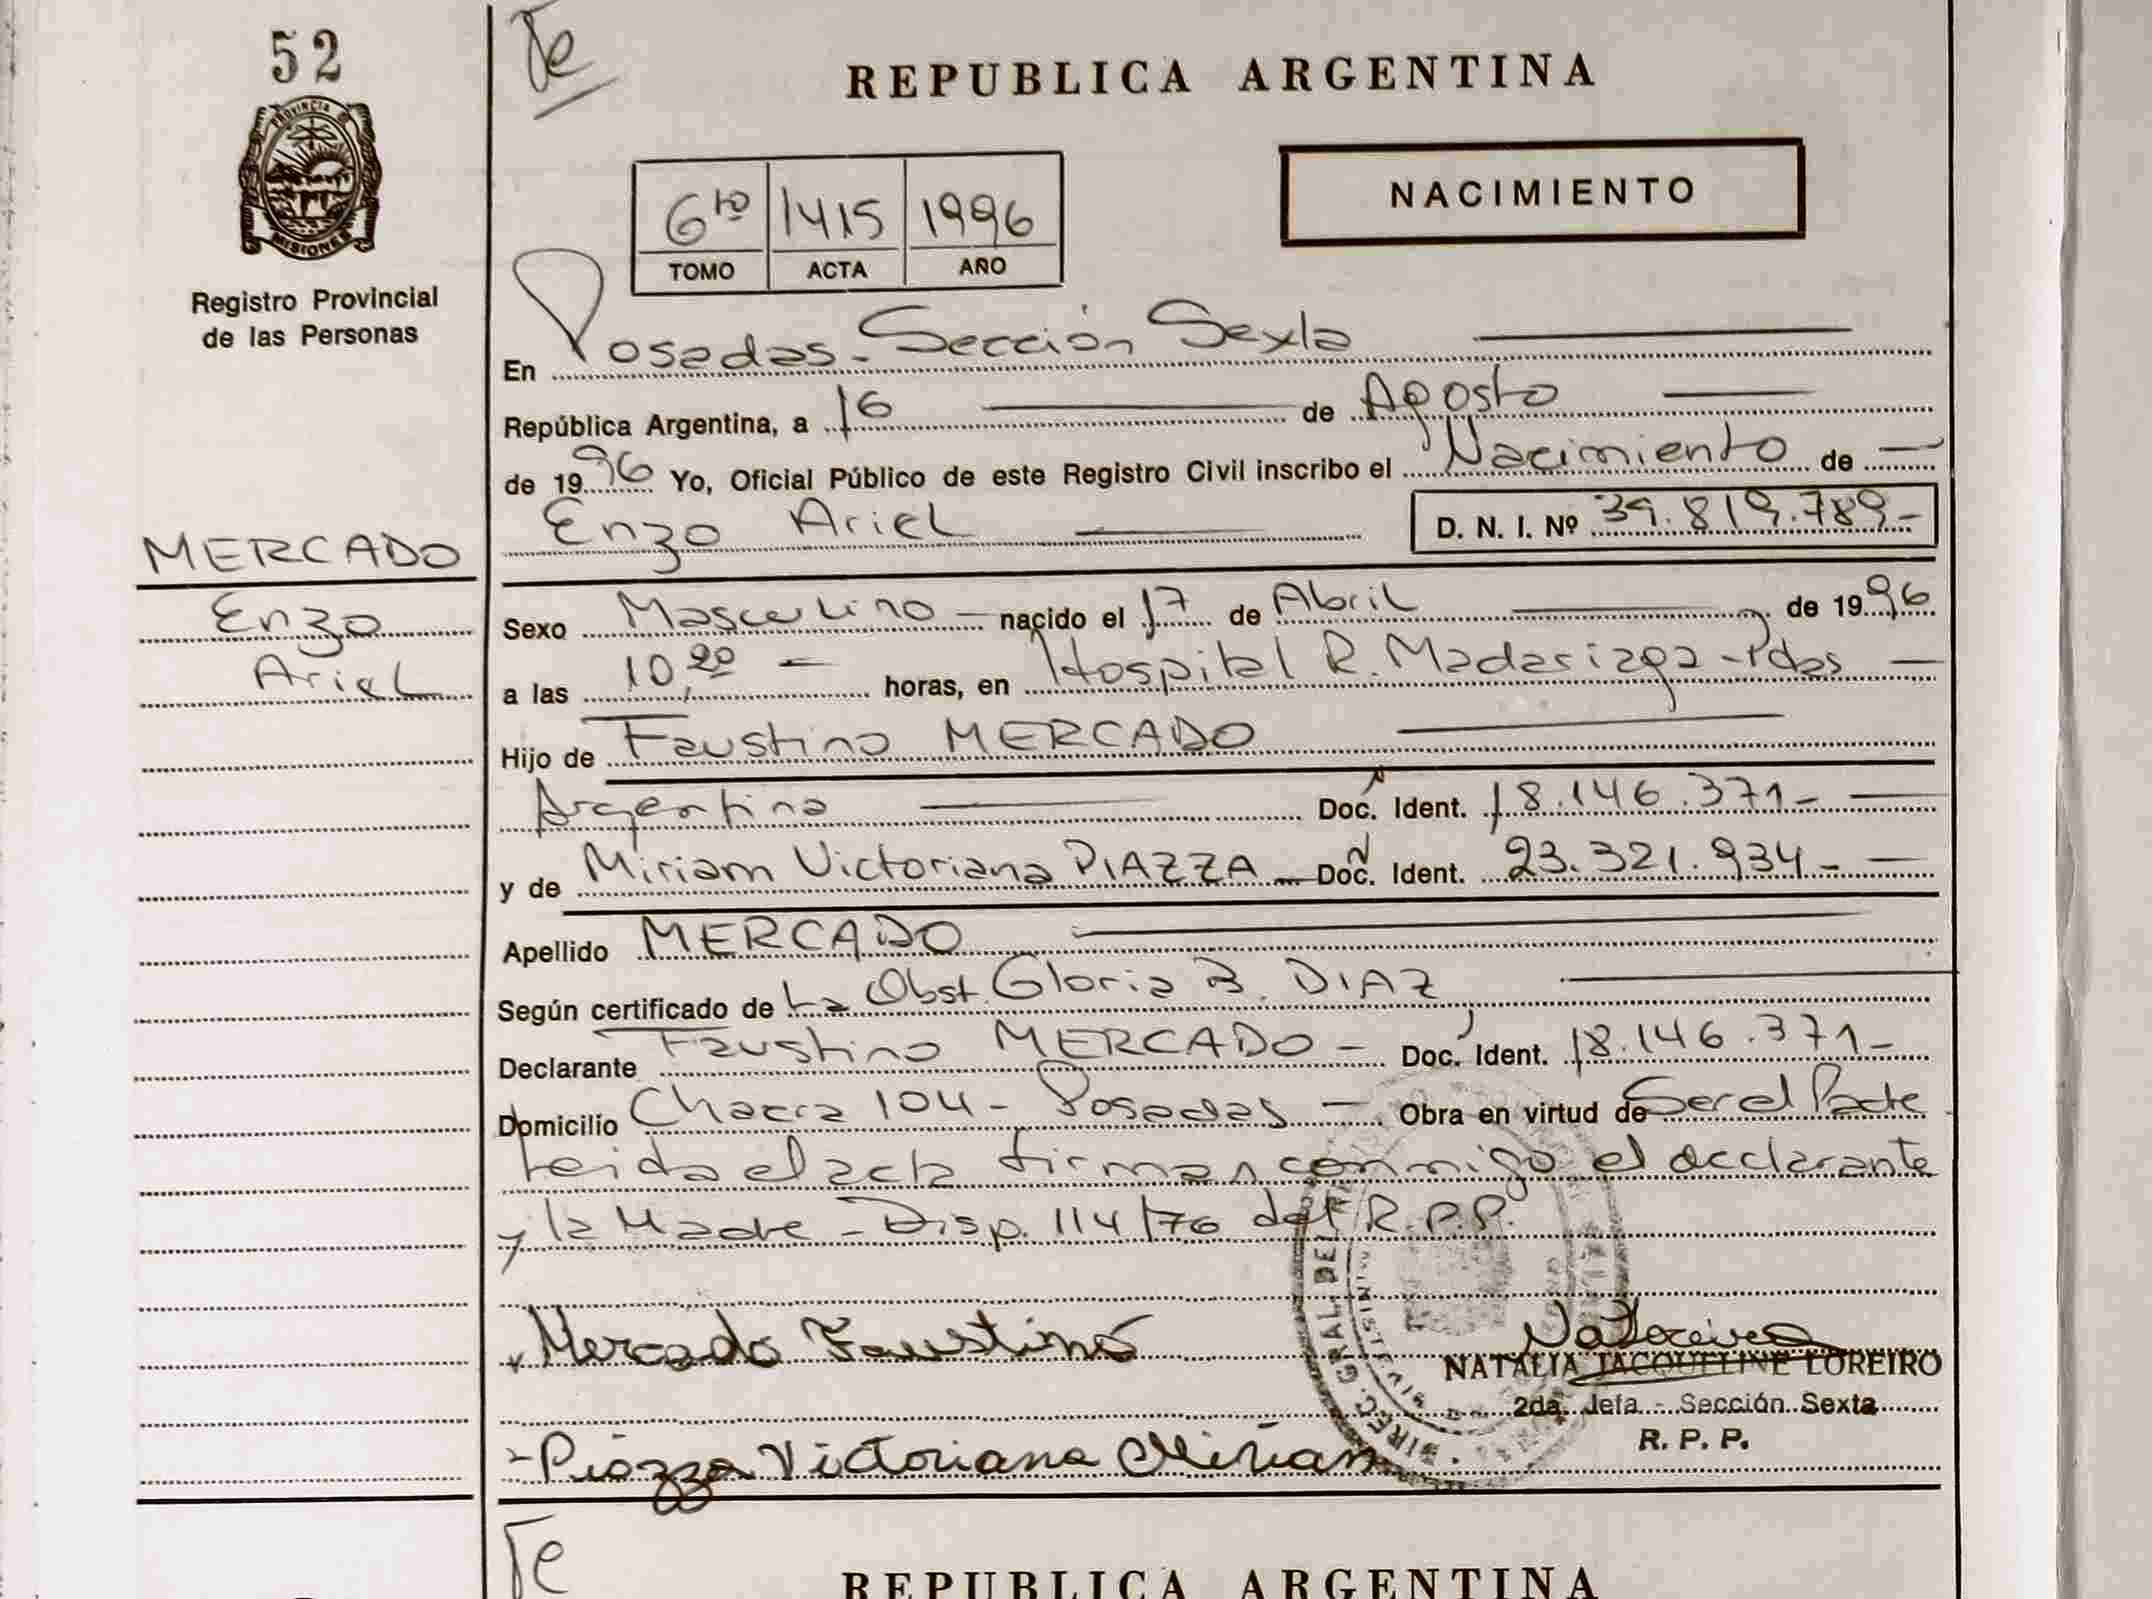 52
PROVINCIA DE
MISIONES
Registro Provincial
de las Personas
MERCADO
Enzo
Ariel
Te
REPUBLICA ARGENTINA
NACIMIENTO
6to 1415 1996
TOMO ACTA AÑO
En Posadas - Sección Sexta
República Argentina, a 16 de Agosto
de 1996 Yo, Oficial Público de este Registro Civil inscribo el Nacimiento de
Enzo Ariel D. N. I. Nº 39.819.789-
Sexo Masculino nacido el 17 de Abril de 1996
a las 10,20 horas, en Hospital R. Madariaga - Pdas
Hijo de Faustino MERCADO
Argentina Doc. Ident. 18.146.371-
y de Miriam Victoriana PIAZZA Doc. Ident. 23.321.934-
Apellido MERCADO
Según certificado de La Obst. Gloria B. DIAZ
Declarante Faustino MERCADO - Doc. Ident. 18.146.371-
Domicilio Chacra 104 - Posadas - Obra en virtud de Ser el Padre
Leida el acta firman conmigo el declarante
y la Madre - Disp. 114/76 del R.P.P.
Mercado Faustino
NATALIA JACQUELINE LOREIRO
2da. Jefa - Sección Sexta
R. P. P.
Piazza Victoriana Miriam
DIREC. GRAL. DE
Te
REPUBLICA ARGENTINA